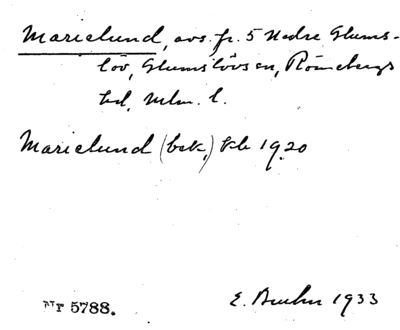 Marielund, avs. fr. 5 Nedre Glums-
löv, Glumslövs sn, Rönnebergs
hd, Mlm. l.
Marielund (bek.) Kb 1920
Nr 5788.
E. Bruhn 1933